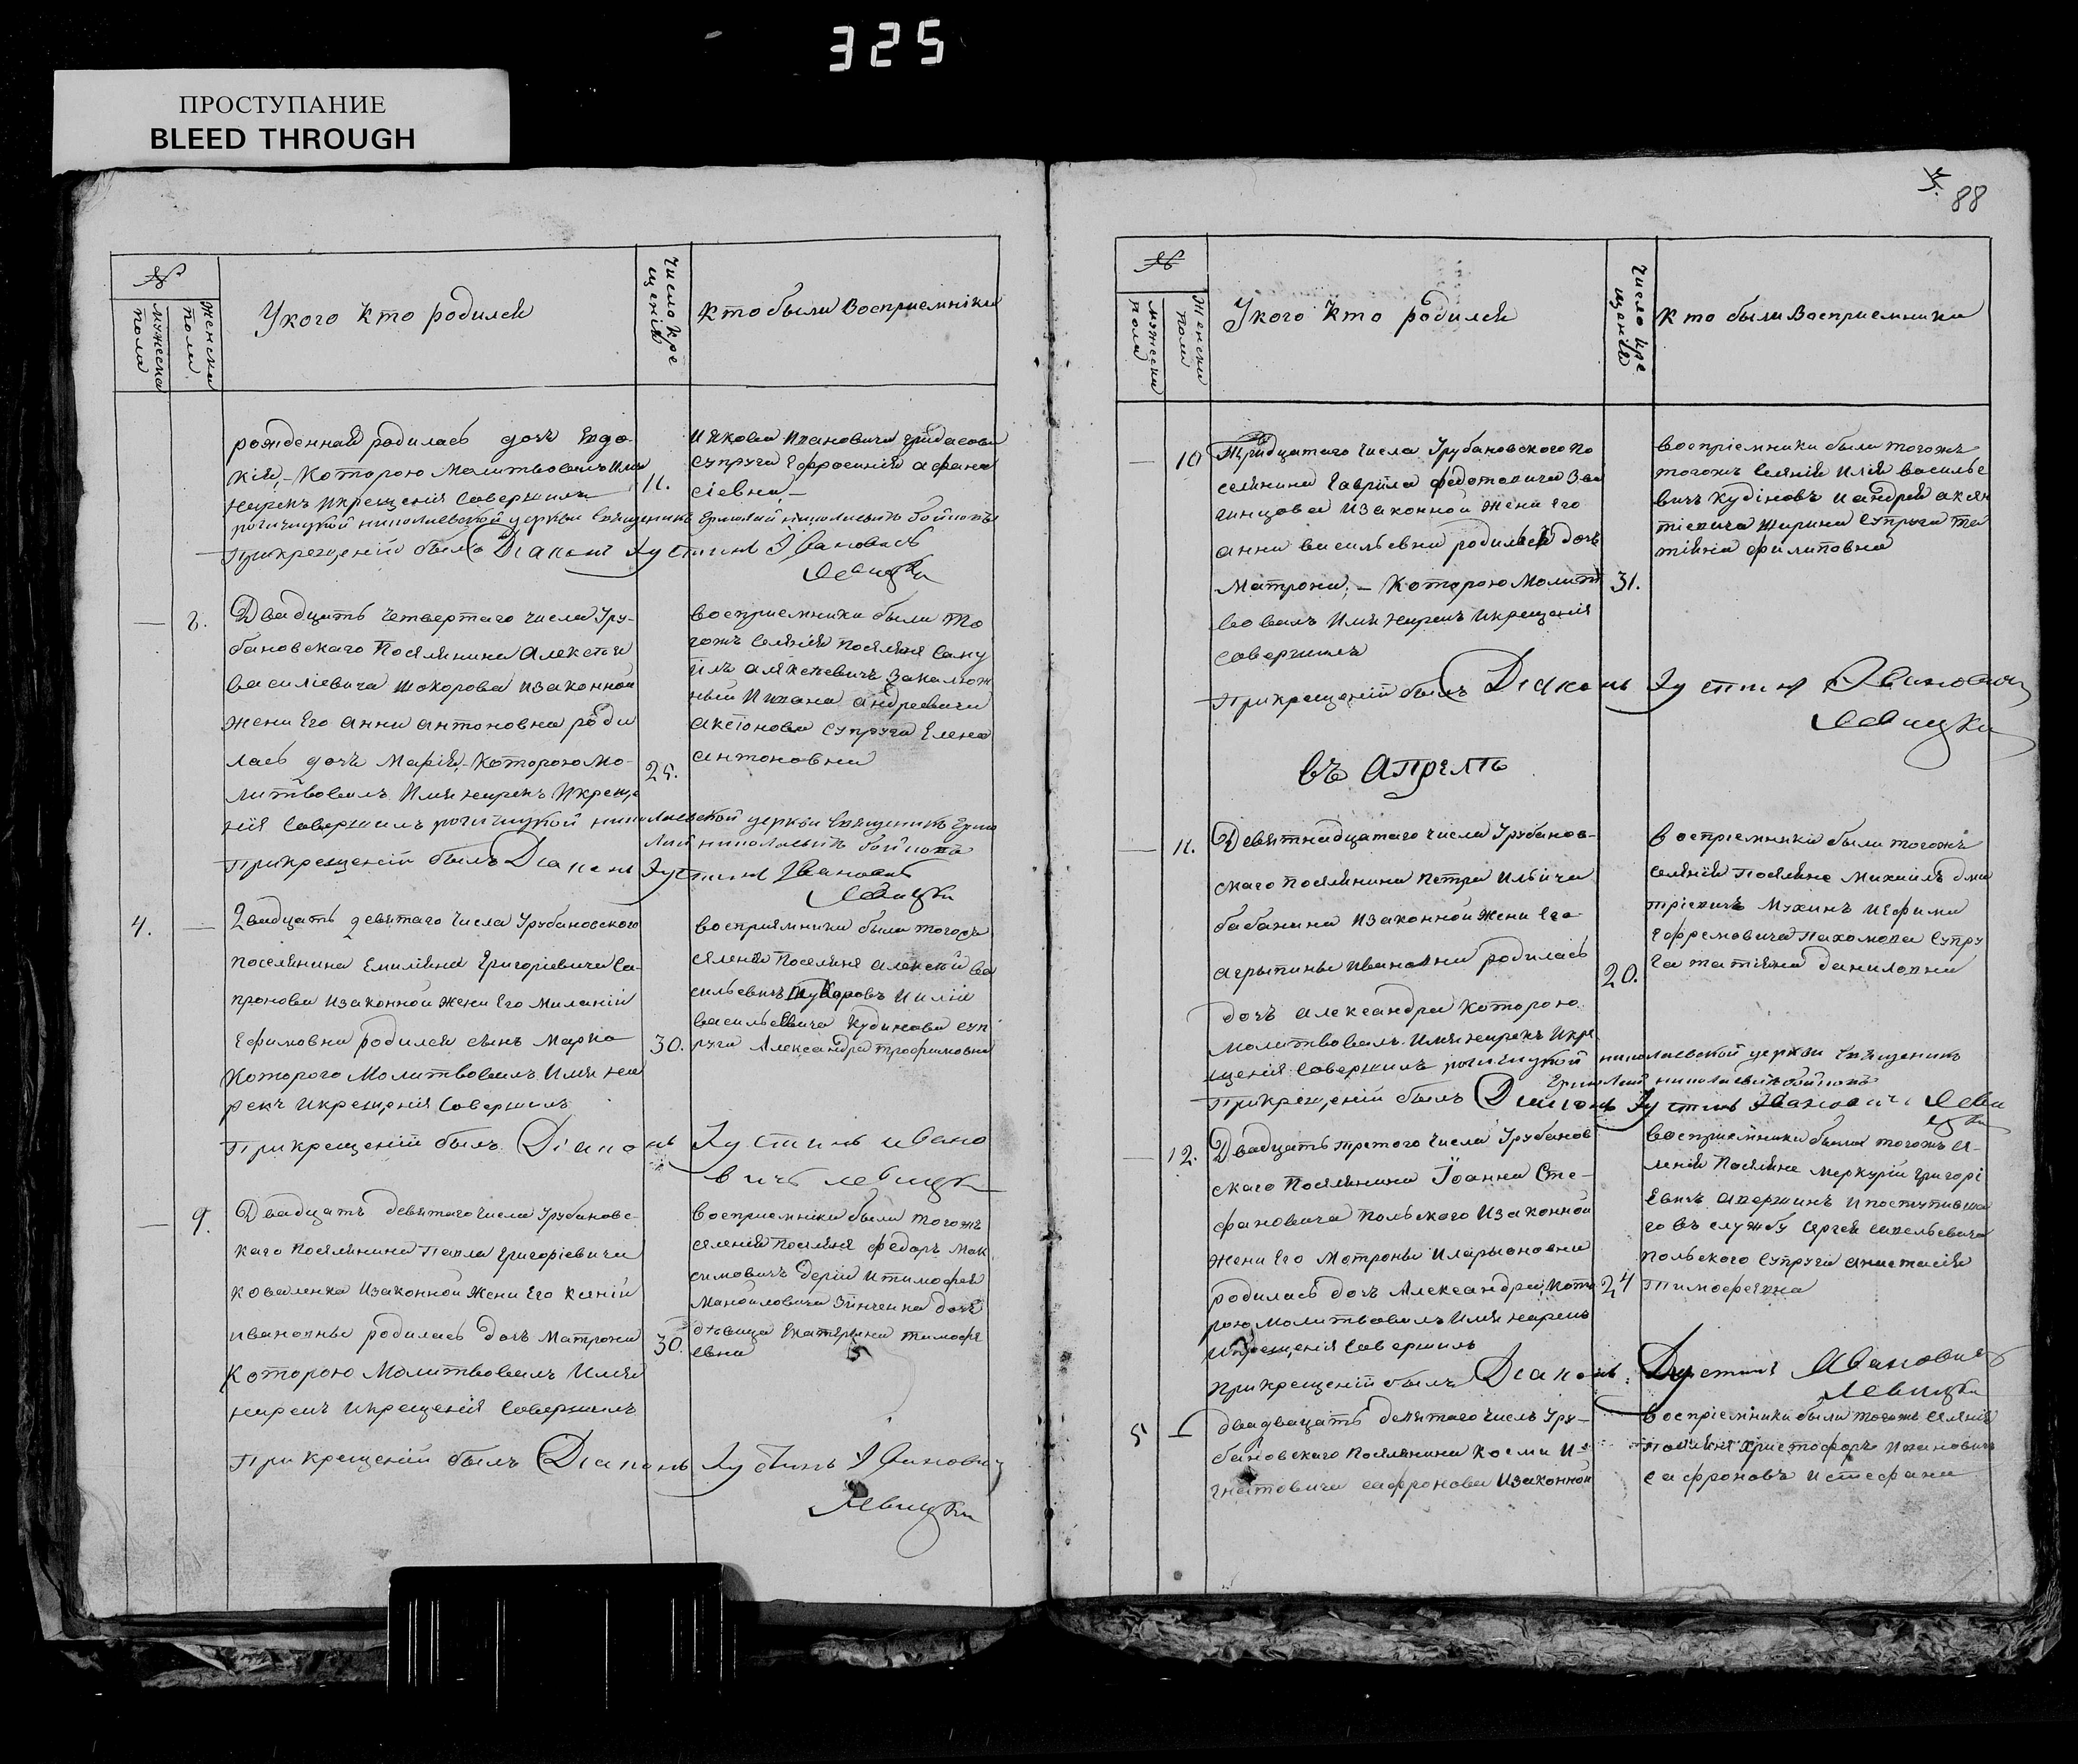 325
ПРОСТУПАНИЕ
BLEED THROUGH
№
мужеска пола
женска пола
У кого кто родился
число кре
щенія
кто были Восприемніки
рожденная родилась дочь Евдо
кія, - Которою Молитвовалъ Имя
нарекъ Икрещенія Совершилъ
11.
Иякова Ивановича гридасова
супруга Ефросинія афана
сіевна, -
николаевской церкви Священникъ Ермолай николаевичъ бойковъ
Прикрещеній былъ Діаконъ Іустинъ Ивановичъ
Левицки
8.
Двадцать четвертаго числа Гру-
бановскаго Поселянина Алексея
Василіевича шокорова Изаконной
жени Его анни антоновна роди
лась дочь Марія, - Которою Мо-
литвовалъ Имя нарекъ Икреще
нія Совершилъ николаевской церкви Священникъ Ермо
лай николаевичъ бойковъ
25.
восприемники были то
гожъ Селянія Поселяня Саму
илъ алексеевичъ закалюж
ный Ивана андреевича
аксіонова Супруга Елена
антоновна
Прикрещеній былъ Діаконъ Іустинъ Ивановичъ
Левицки
4.
Двадцать девятаго числа Грубановского
поселянина Емиліяна Григоріевича Са-
пронова Изаконной жени Его Миланіи
Ефимовни родился сынъ Марко
Которого Молитвовалъ Имя на
рекъ Икрещенія Совершилъ
30.
восприямники были тогожъ
селенія Поселяня алексей ва
сильевичъ Шукоровъ Иилій
васильевича Кудинова суп
руга Александра трофимовна
Прикрещеній былъ Діаконъ Іустинъ ивано
вичъ левицки
9.
Двадцать девятаго числа Грубановс-
каго поселянина Павла Григоріевича
коваленка Изаконной жени Его ксеніи
ивановны родилась дочь Матрона
Которою Молитвовалъ Имя
нарекъ Икрещенія Совершилъ
30.
восприемніки были тогожъ
селенія Поселяня федоръ Мак
симовичъ дерій итимофея
Мануиловича Зинченка дочь
девица Екатерина тимофе
евна
Прикрещеній былъ Діаконъ Іустинъ Ивановичъ
Левицки
88
№
мужеска пола
женска пола
У кого кто родился
число кре
щенія
кто были Восприемники
10
Тридцатаго числа Грубановского по
селянина Гаврила федотовича Зве
гинцова Изаконной жени Его
анни васильевни родилась дочь
Матрона, - Которою Молит
вовалъ Имя нарекъ Икрещенія
совершилъ
31.
воспріемники были тогожъ
тогожъ Селянія Илія василье
вичъ кудіновъ иандрея аксен
тіевича жирина Супруга та
тіяна филиповна
Прикрещеній былъ Діаконъ Іустинъ Ивановичъ
Левицки
въ Апреле
11.
Девятнадцатаго числа Грубанов-
скаго поселянина петра ильича
бабанина Изаконной жени Его
агрыпины Ивановни родилась
дочь Александра Которою
Молитвовалъ Имя нарекъ Икре
щенія Совершилъ николаевской церкви Священникъ
Ермолай николаевичъ бойковъ
20.
воспріемники были тогожъ
селянія Поселяне Михаилъ дми
тріевичъ Мухинъ иефима
Ефремовича Пахомова Супру
га татіяна даниловна
Прикрещеній былъ Діаконъ Іустинъ Ивановичъ Леви
цки
12.
Двадцать третого числа Грубанов
скаго Поселянина Іоанна Сте-
фановича Польского Изаконной
жени Его Мотроны Иларыоновни
родилась дочь Александра, Кото
рою Молитвовалъ Имя нарекъ
Икрещенія Совершилъ
24
восприемники были тогожъ се-
ленія Поселяне Меркурій григорі
Евичъ аверинъ ипоступивша
го въ службу Сергея савельевича
польского Супруга анастасія
Тимофеевна
прикрещеній былъ Діаконъ Іустинъ Ивановичъ
Левицки
5
двадвацать девятаго числъ Гру-
бановскаго поселянина косми И-
гнатовича сафронова Изаконной
воспріемники были тогожъ селянія
Поселяня христофоръ ивановичъ
сафроновъ истефана